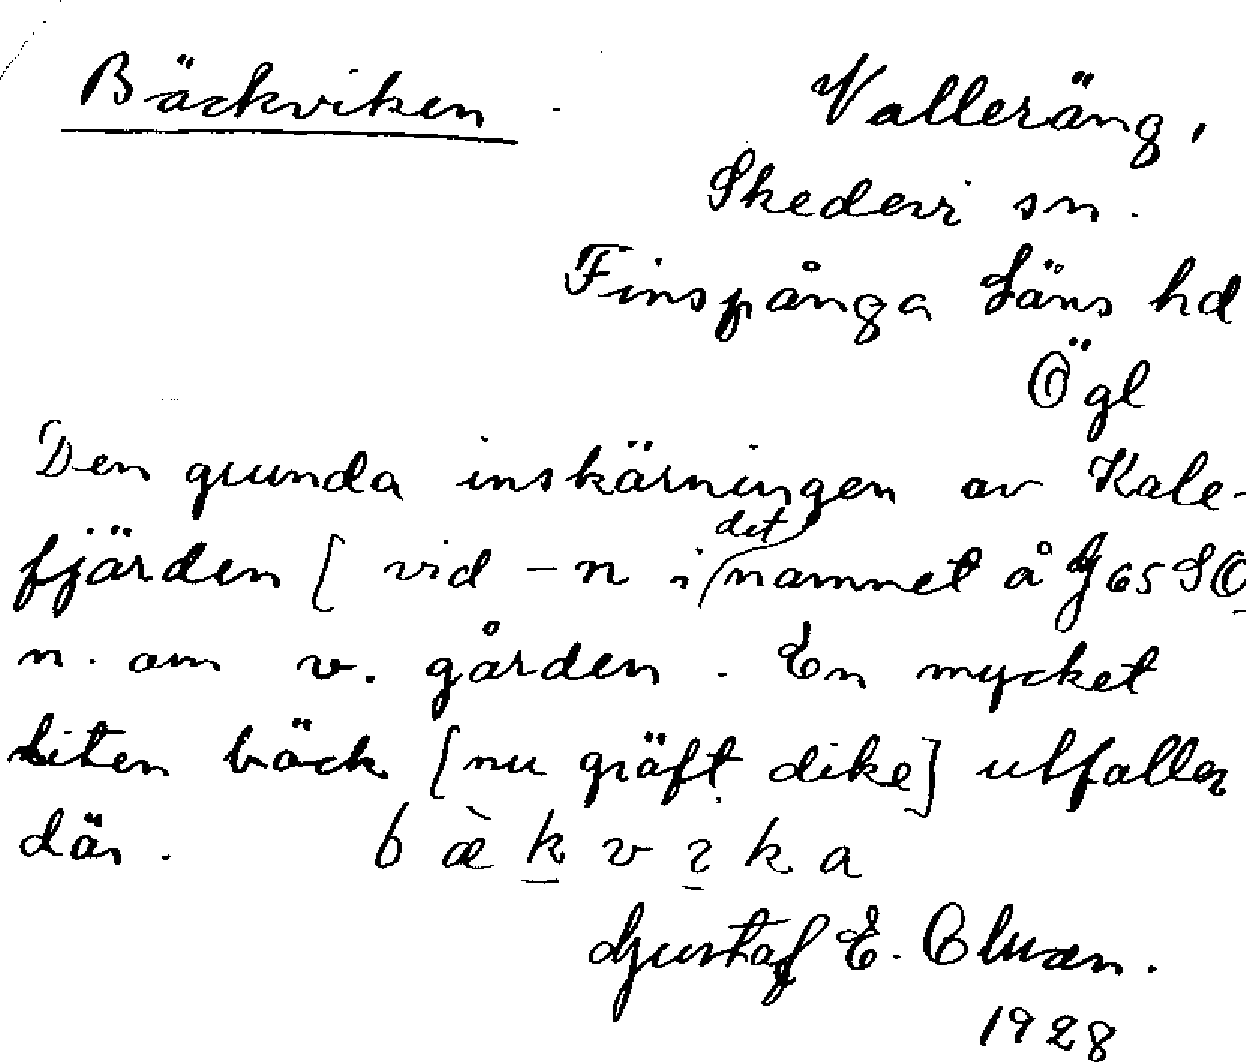 Bäckviken Valleräng,
Skedevi sn.
Finspånga Läns hd
Ögl
Den grunda inskärningen av Kale-
fjärden [ vid -n i det namnet å G 65 SO
n. om v. gården. En mycket
liten bäck [nu gräft dike] utfaller
där. b æ̀ k v k a
Gustaf E.
1928